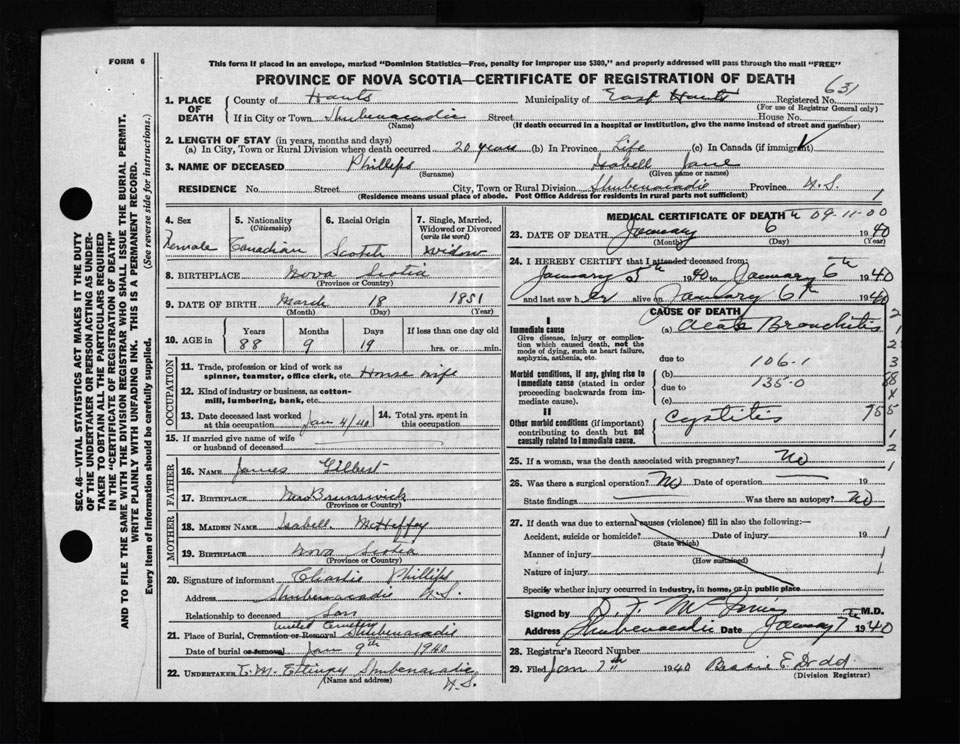 FORM 6
This form if placed in an envelope, marked "Dominion Statistics—Free, penalty for improper use $300," and properly addressed will pass through the mail "FREE"
PROVINCE OF NOVA SCOTIA—CERTIFICATE OF REGISTRATION OF DEATH
631
1. PLACE OF DEATH County of Hants Municipality of East Hants Registered No.
(For use of Registrar General only)
If in City or Town Shubenacadie Street House No.
(Name) (If death occurred in a hospital or institution, give the name instead of street and number)
2. LENGTH OF STAY (in years, months and days)
(a) In City, Town or Rural Division where death occurred 20 years (b) In Province Life (c) In Canada (if immigrant)
3. NAME OF DECEASED Phillips Isabell Jane
(Surname) (Given name or names)
RESIDENCE No. Street City, Town or Rural Division Shubenacadie Province N.S. 1
(Residence means usual place of abode. Post Office Address for residents in rural parts not sufficient)
4. Sex
Female
5. Nationality
(Citizenship)
Canadian
6. Racial Origin
Scotch
7. Single, Married, Widowed or Divorced
(write the word)
Widow
8. BIRTHPLACE Nova Scotia
(Province or Country)
9. DATE OF BIRTH March 18 1851
(Month) (Day) (Year)
10. AGE in Years Months Days If less than one day old
88 9 19 hrs. or min.
OCCUPATION
11. Trade, profession or kind of work as
spinner, teamster, office clerk, etc. House wife
12. Kind of industry or business, as cotton-
mill, lumbering, bank, etc.
13. Date deceased last worked
at this occupation Jan 4/40
14. Total yrs. spent in
this occupation
15. If married give name of wife
or husband of deceased
FATHER
16. NAME James Gilbert
17. BIRTHPLACE New Brunswick
(Province or Country)
MOTHER
18. MAIDEN NAME Isabell McHeffey
19. BIRTHPLACE Nova Scotia
(Province or Country)
20. Signature of informant Charlie Phillips
Address Shubenacadie N.S.
Relationship to deceased Son
United Cemetery
21. Place of Burial, Cremation or Removal Shubenacadie
Date of burial or removal Jan 9th 1940
22. UNDERTAKER E.M. Ettinger Shubenacadie
(Name and address) N.S.
MEDICAL CERTIFICATE OF DEATH 09-11-00
23. DATE OF DEATH January 6 1940
(Month) (Day) (Year)
24. I HEREBY CERTIFY that I attended deceased from:
January 5th 1940 to January 6th 1940
and last saw her alive on January 6th 1940
CAUSE OF DEATH
I
Immediate cause (a) Acute Bronchitis
Give disease, injury or complica-
tion which caused death, not the
mode of dying, such as heart failure,
asphyxia, asthenia, etc.
due to 106.1
Morbid conditions, if any, giving rise to
immediate cause (stated in order
proceeding backwards from im-
mediate cause).
(b)
due to 135.0
(c)
II
Other morbid conditions (if important)
contributing to death but not
causally related to immediate cause.
Cystitis
25. If a woman, was the death associated with pregnancy? No
26. Was there a surgical operation? No Date of operation 19
State findings Was there an autopsy? No
27. If death was due to external causes (violence) fill in also the following:—
Accident, suicide or homicide? Date of injury 19
(State which)
Manner of injury
(How sustained)
Nature of injury
Specify whether injury occurred in industry, in home, or in public place
Signed by M.D.
Address Shubenacadie Date January 7 1940
28. Registrar's Record Number
29. Filed Jan 7th 1940 Bessie E. Dodd
(Division Registrar)
SEC. 46—VITAL STATISTICS ACT MAKES IT THE DUTY
OF THE UNDERTAKER OR PERSON ACTING AS UNDER-
TAKER TO OBTAIN ALL THE PARTICULARS REQUIRED
IN THE "CERTIFICATE OF REGISTRATION OF DEATH"
AND TO FILE THE SAME WITH THE DIVISION REGISTRAR WHO SHALL ISSUE THE BURIAL PERMIT.
WRITE PLAINLY WITH UNFADING INK. THIS IS A PERMANENT RECORD.
Every item of Information should be carefully supplied. (See reverse side for instructions.)